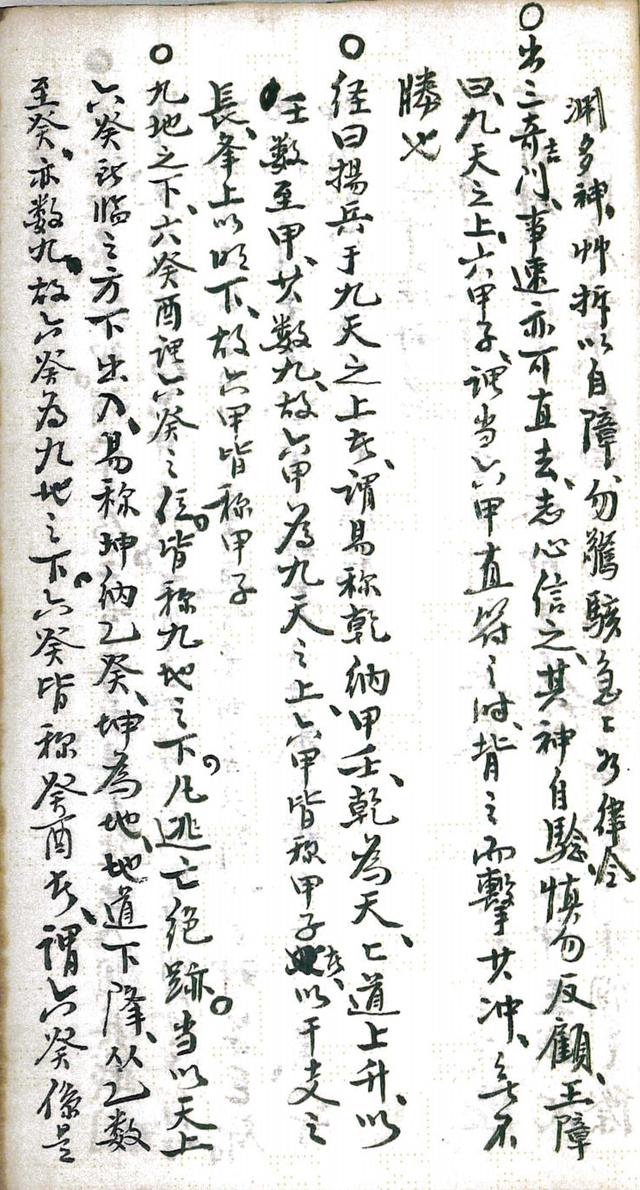 渊多神、艸折以自障、勿驚駭急々如律令
○出三奇吉门、事速亦可直去、志心信之、其神自驗、慎勿反顧、王障
曰、九天之上、六甲子、谓当六甲直符之时、背之而擊其冲、无不
勝也
○经曰揚兵于九天之上者、谓易称乾纳甲壬、乾為天、天道上升、以
壬数至甲、其数九、故六甲為九天之上、六甲皆称甲子者、以干支之
長、奉上以临下、故六甲皆称甲子
○九地之下、六癸酉谓六癸之位。皆称九地之下。凡逃亡绝跡。当以天上
六癸所临之方下出入、易称坤纳乙癸、坤為地、地道下降、从乙数
至癸、亦数九。故六癸為九地之下。六癸皆称癸酉者、谓六癸係是